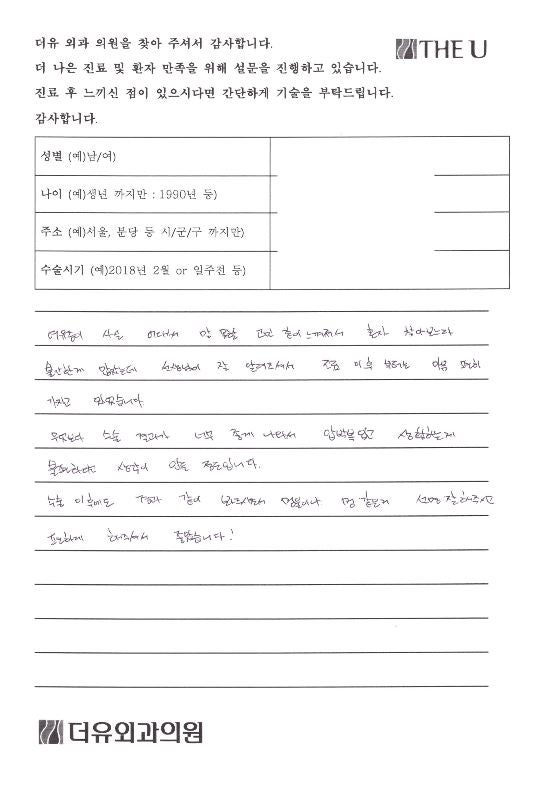 더유 외과 의원을 찾아 주셔서 감사합니다.
THE U
더 나은 진료 및 환자 만족을 위해 설문을 진행하고 있습니다.
진료 후 느끼신 점이 있으시다면 간단하게 기술을 부탁드립니다.
감사합니다.
성별 (예)남/여)
나이 (예)생년 까지만 : 1990년 등)
주소 (예)서울, 분당 등 시/군/구 까지만)
수술시기 (예)2018년 2월 or 일주전 등)
사실 어디서 말 못할 고민 같이 느껴져서 혼자 찾아보느라
불안한게 많았는데 선생님이 잘 알려주셔서 진료 이후 부터는 마음 편히
가지고 있었습니다
무엇보다 수술 결과가 너무 좋게 나와서 압박복 입고 생활하는게
불편하다는 생각이 안들 정도입니다.
수술 이후에도 경과 같이 봐주시면서 멍울이나 멍 같은거 설명 잘해주시고
꼼꼼하게 해주셔서 좋았습니다!
더유외과의원